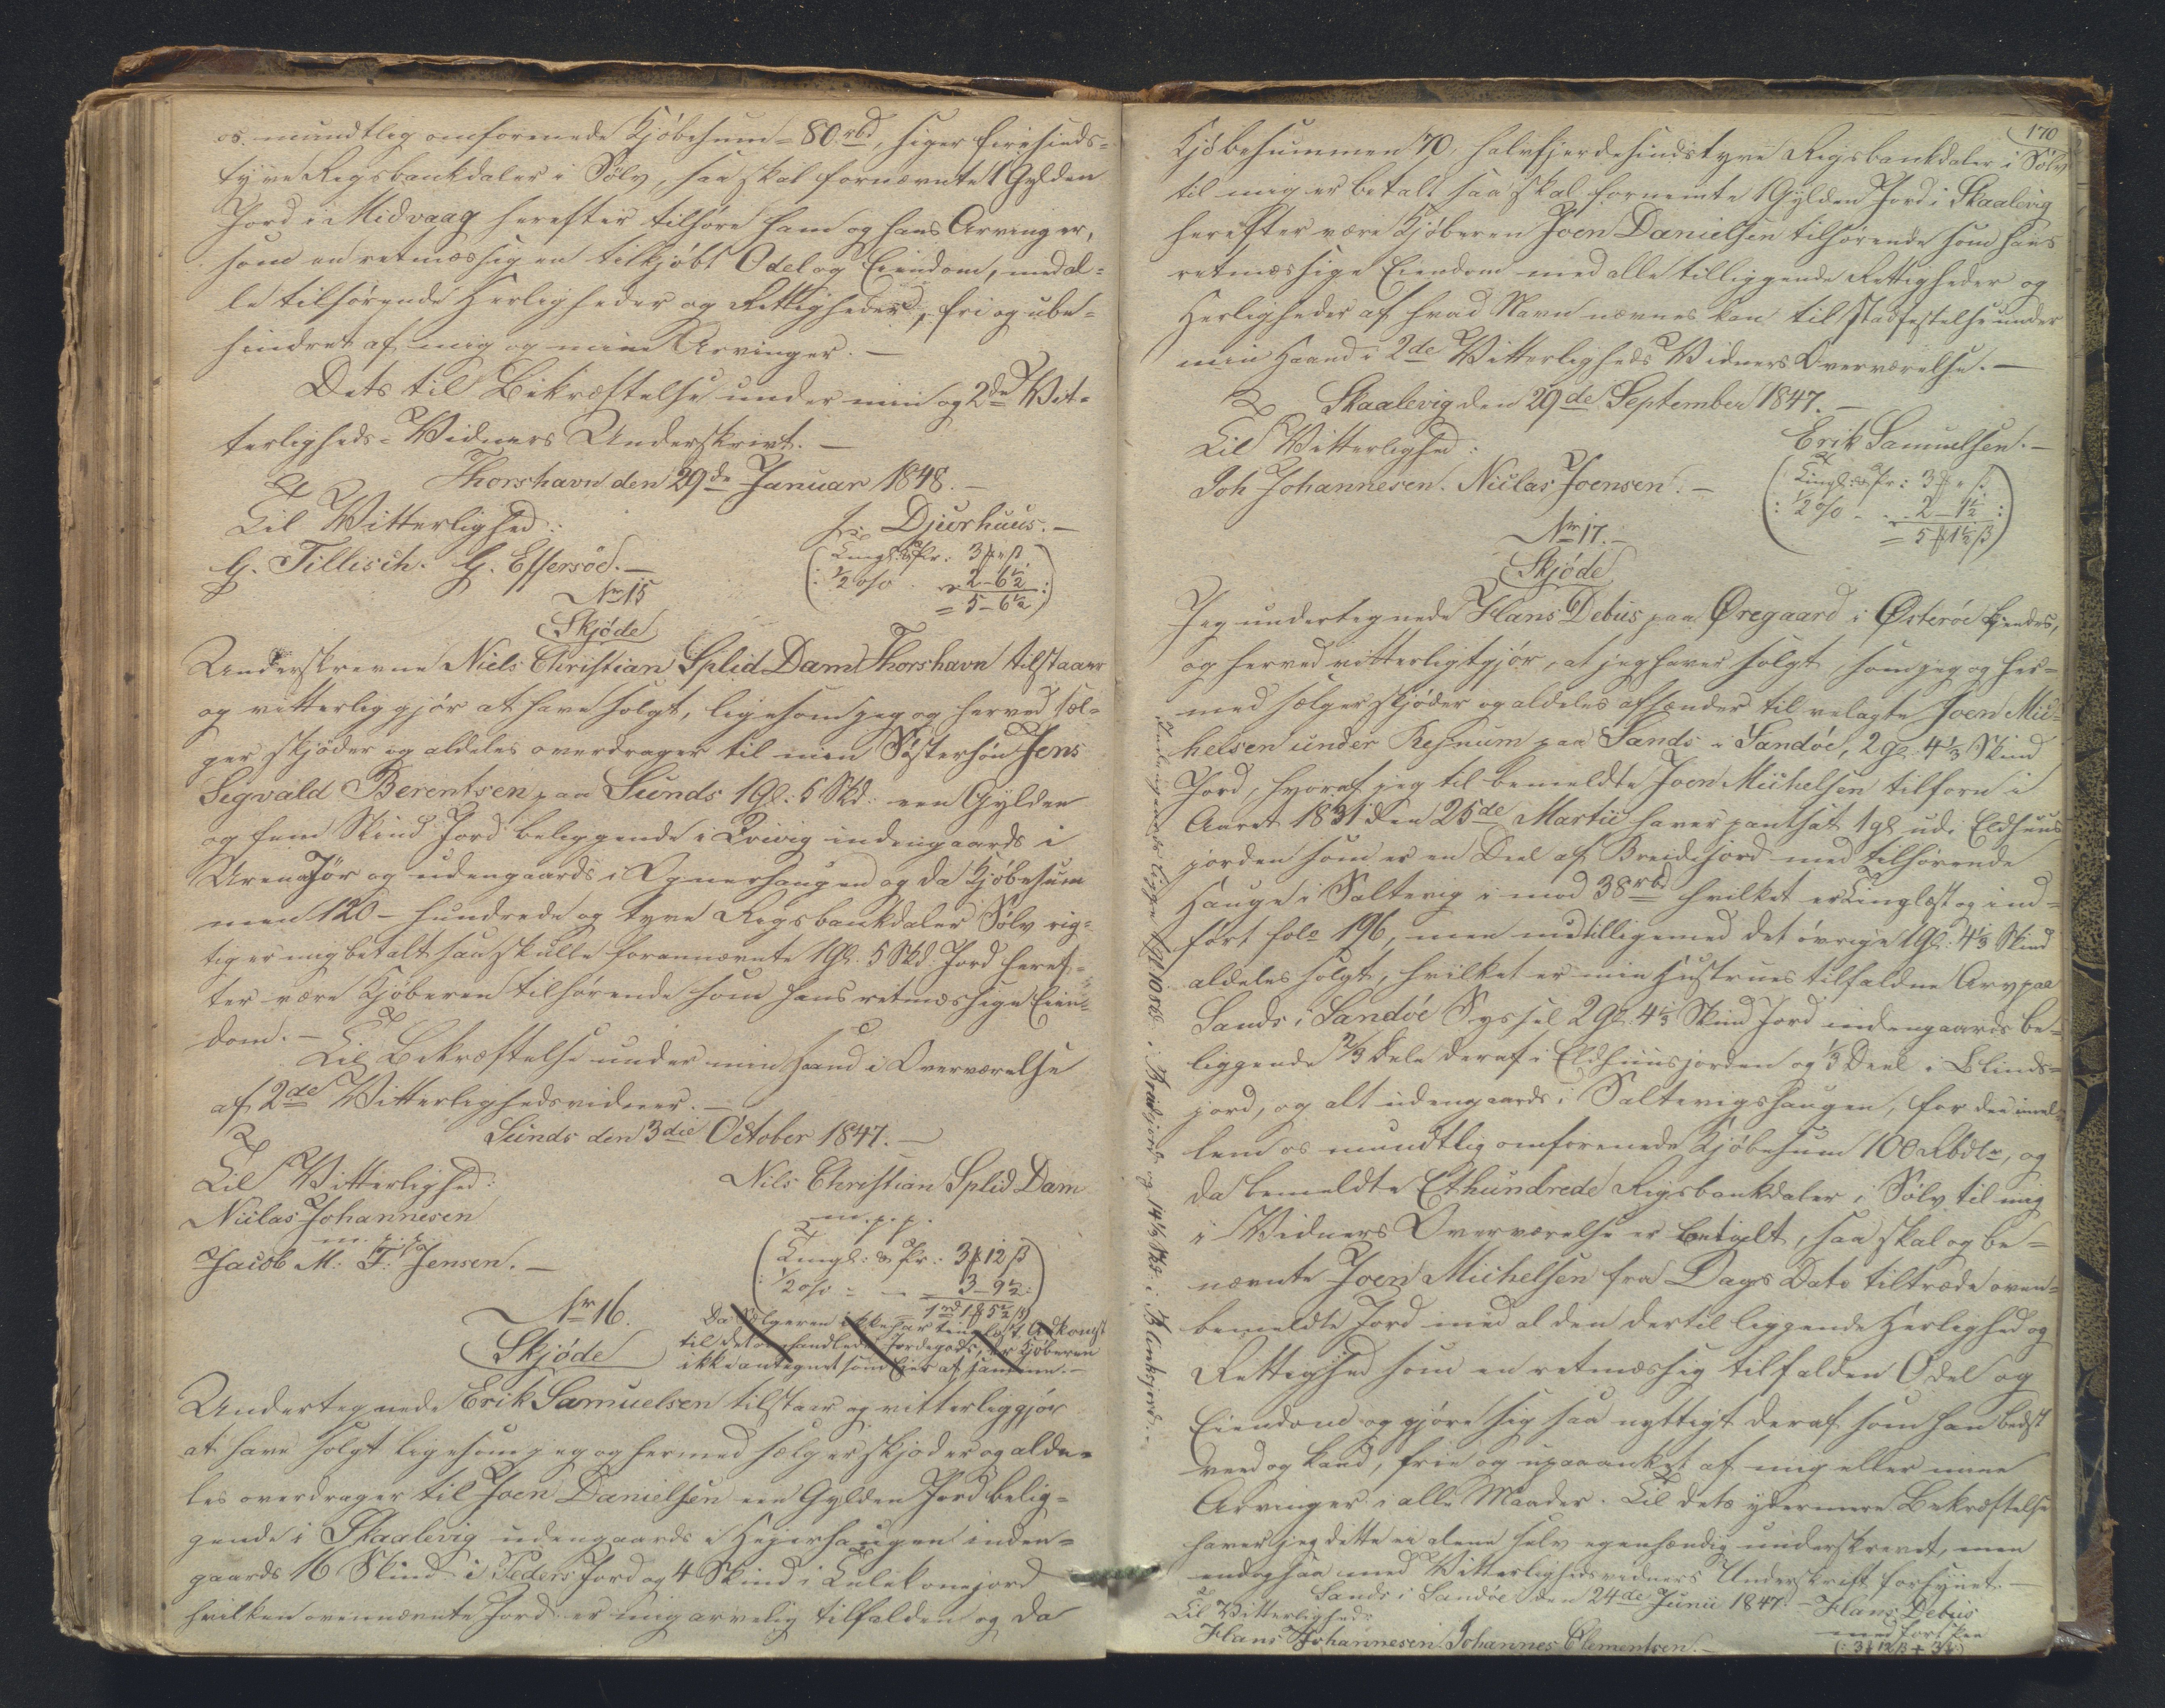 os mundtlig omforenede Kjöbesum = 80 rbd, siger firesinds-
tyve Rigsbankdaler i Sölv, saa skal fornævnte 1 Gylden
Jord i Midvaag herefter tilhöre ham og hans Arvinger,
som en retmæssigen tilkjöbt Odel og Eiendom, med al-
le tilhörende Herligheder og Rettigheder, fri og ube-
hindret af mig og mine Arvinger. —
Dets til Bekræftelse under min og 2de Vit-
terligheds-Vidners Underskrivt. —
Thorshavn den 29de Januar 1848. —
Til Vitterlighed:
Djurhuus. —
G. Tillisch. G. Effersöe. —
(Tingl: & Pr: 3 ƒ " ß
: ½ o/o - 2 - 6½ :
= 5 - 6½)
Nr 15
Skjöde
Underskrevne Niels Christian Splid Dam Thorshavn tilstaaer
og vitterliggjör at have solgt, ligesom jeg og herved sæl-
ger skjöder og aldeles overdrager til min Sösterson Jens
Sigvald Berentsen paa Sunds 1 Gl: 5 Skd: een Gylden
og fem Skind Jord beliggende i Qvivig indengaards i
Urenajör og udengaards i Egnershaugen og da Kjöbesum
men 120 - hundrede og tyve Rigsbankdaler Sölv rig-
tig er mig betalt saa skulle forannævnte 1 Gl. 5 Skd. Jord heref-
ter være Kjöberen tilhörende som hans retmæssige Eien-
dom. —
Til Bekræftelse under min Haand i Overværelse
af 2de Vitterlighedsvidner. —
Sunds den 3die October 1847. —
Til Vitterlighed:
Nils Christian Splid Dam
m. p. p.
Niclas Johannesen
m. p. p.
Jacob M: F: Jensen. —
(Tingl: & Pr: 3 ƒ 12 ß
: ½ o/o - - 3 - 9½ :
= 1 rd 1 ƒ 5½ ß)
Nr 16.
Da Sælgeren ikke har tinglæst Adkomst
til det afhandlede Jordegods, er Kjöberen
ikke antegnet som Eier af samme. —
Skjöde
Undertegnede Erik Samuelsen tilstaar og vitterliggjör
at have solgt ligesom jeg og hermed sælger skjöder og alde-
les overdrager til Joen Danielsen een Gylden Jord belig-
gende i Skaalevig udengaards i Hejershaugen inden-
gaards 16 Skind i Peders Jord og 4 Skind i Kulekonejord
hvilken ovennævnte Jord er mig arvelig tilfalden og da
170
Kjöbesummen 70, halvfjerdesindstyve Rigsbankdaler i Sölv
til mig er betalt saa skal fornemte 1 Gylden Jord i Skaalevig
herefter være Kjöberen Joen Danielsen tilhörende som hans
retmæssige Eiendom med alle tilliggende Rettigheder og
Herligheder af hvad Navn nævnes kan til Stadfestelse under
min Haand i 2de Vitterligheds Vidners Overværelse. —
Skaalevig den 29de September 1847. —
Til Vitterlighed:
Erik Samuelsen. —
Joh Johannesen. Niclas Joensen. —
(Tingl: & Pr: 3 ƒ " ß
: ½ o/o - - 2 - 1½ :
= 5 ƒ 1½ ß)
Nr 17. —
Skjöde
Jeg undertegnede Hans Debes paa Øregaard i Østeröe kjendes,
og herved vitterligtgjör, at jeg haver solgt, som jeg og her-
med sælger skjöder og aldeles afhænder til velagte Joen Mic-
helsen under Rejnum paa Sands i Sandöe, 2 gl. 4⅓ Skind
Jord, hvoraf jeg til bemeldte Joen Michelsen tilforn i
Aaret 1831 den 25de Martii haver pantsat 1 gl udi Eldhuus
jorden som er en Deel af Breidejord med tilhörende
Hauge i Saltevig i mod 38 rbd hvilket er tinglæst og ind-
fört fol: 196, men nu tilligemed det övrige 1 Gl: 4⅓ Skind
aldeles solgt, hvilket er min Hustrues tilfaldne Arv paa
Sands i Sandöe Syssel 2 Gl. 4⅓ Skind Jord indengaards be-
liggende ⅔ Dele deraf i Eldhuusjorden og ⅓ Deel i Blinds-
jord, og alt udengaards i Saltevigshaugen, for den imel-
lem os mundtlig omforenede Kjöbesum 100 Rbdlr, og
da bemeldte Ethundrede Rigsbankdaler i Sölv til mig
i Vidners Overværelse er betalt, saa skal og be-
nævnte Joen Michelsen fra Dags Dato tiltræde oven-
bemeldte Jord med al den dertil liggende Herlighed og
Rettighed som en retmæssig tilfalden Odel og
Eiendom og gjöre sig saa nyttigt deraf som han bedst
veed og kand, frie og upaaanket af mig eller mine
Arvinger i alle Maader. Til dets ydermere Bekræftelse
haver jeg dette ei alene selv egenhændig underskrevet, men
endogsaa med Vitterlighedsvidners Underskrift forsynet. —
Sands i Sandöe den 24de Junii 1847. — Hans Debes
Til Vitterlighed:
Hans Johannesen. Johannes Clementsen. —
(: 3 ƒ 12 ß + 3 ƒ)
Indengaards ligge 1 gl 10 skd. i Breidejord og 14⅓ Skd i Blinksjord. —